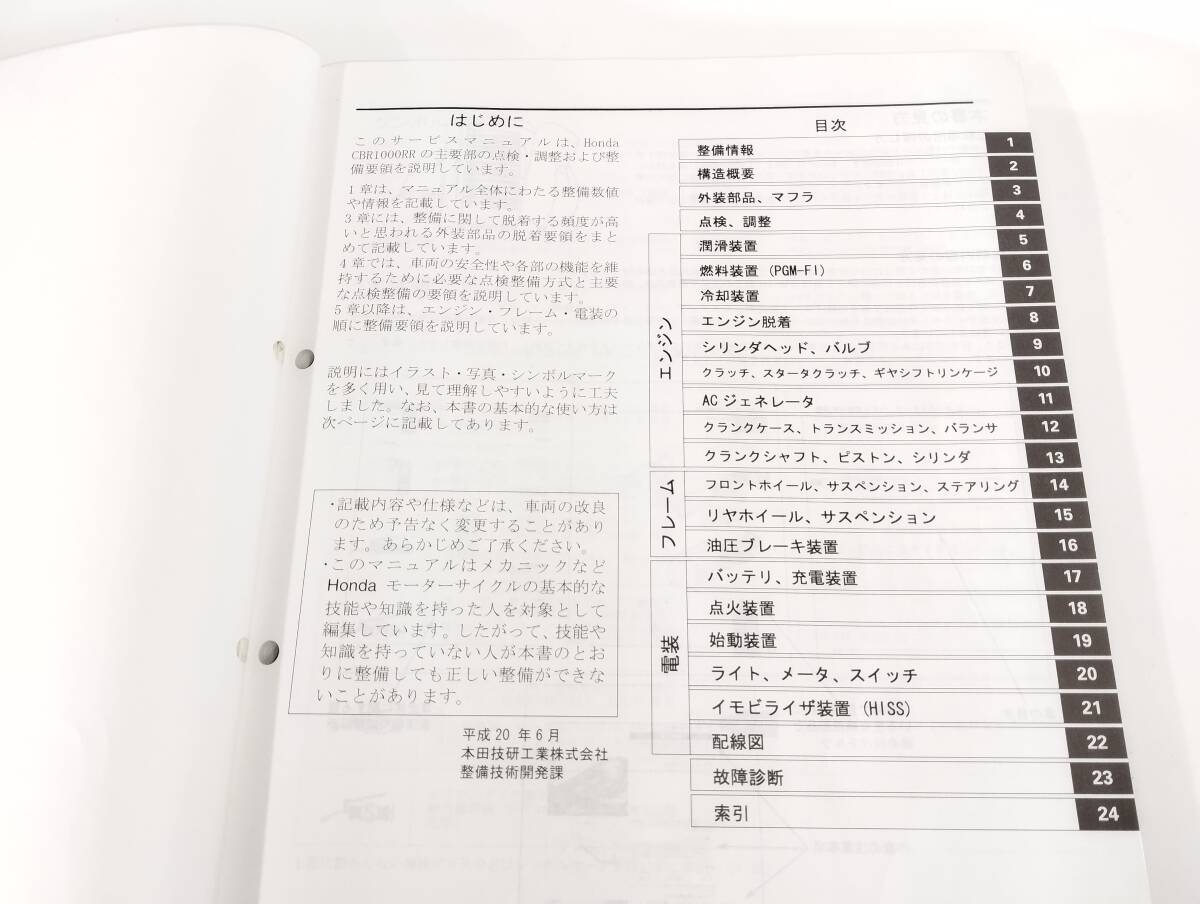 はじめに
このサービスマニュアルは、Honda
CBR1000RR の主要部の点検・調整および整
備要領を説明しています。
1 章は、マニュアル全体にわたる整備数値
や情報を記載しています。
3 章には、整備に関して脱着する頻度が高
いと思われる外装部品の脱着要領をまと
めて記載しています。
4 章では、車両の安全性や各部の機能を維
持するために必要な点検整備方式と主要
な点検整備の要領を説明しています。
5 章以降は、エンジン・フレーム・電装の
順に整備要領を説明しています。
説明にはイラスト・写真・シンボルマーク
を多く用い、見て理解しやすいように工夫
しました。なお、本書の基本的な使い方は
次ページに記載してあります。
・記載内容や仕様などは、車両の改良
のため予告なく変更することがあり
ます。あらかじめご了承ください。
・このマニュアルはメカニックなど
Honda モーターサイクルの基本的な
技能や知識を持った人を対象として
編集しています。したがって、技能や
知識を持っていない人が本書のとお
りに整備しても正しい整備ができな
いことがあります。
平成 20 年 6 月
本田技研工業株式会社
整備技術開発課
目次
整備情報 1
構造概要 2
外装部品、マフラ 3
点検、調整 4
エンジン
潤滑装置 5
燃料装置 (PGM-FI) 6
冷却装置 7
エンジン脱着 8
シリンダヘッド、バルブ 9
クラッチ、スタータクラッチ、ギヤシフトリンケージ 10
AC ジェネレータ 11
クランクケース、トランスミッション、バランサ 12
クランクシャフト、ピストン、シリンダ 13
フレーム
フロントホイール、サスペンション、ステアリング 14
リヤホイール、サスペンション 15
油圧ブレーキ装置 16
電装
バッテリ、充電装置 17
点火装置 18
始動装置 19
ライト、メータ、スイッチ 20
イモビライザ装置 (HISS) 21
配線図 22
故障診断 23
索引 24